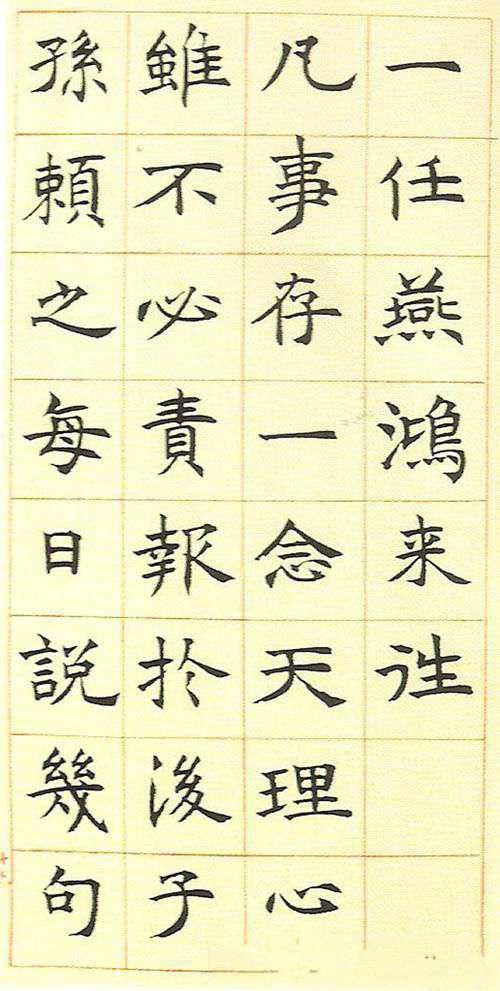 一任燕鴻来徃
凡事存一念天理心
雖不必責報扵後子
孫頼之每日説幾句